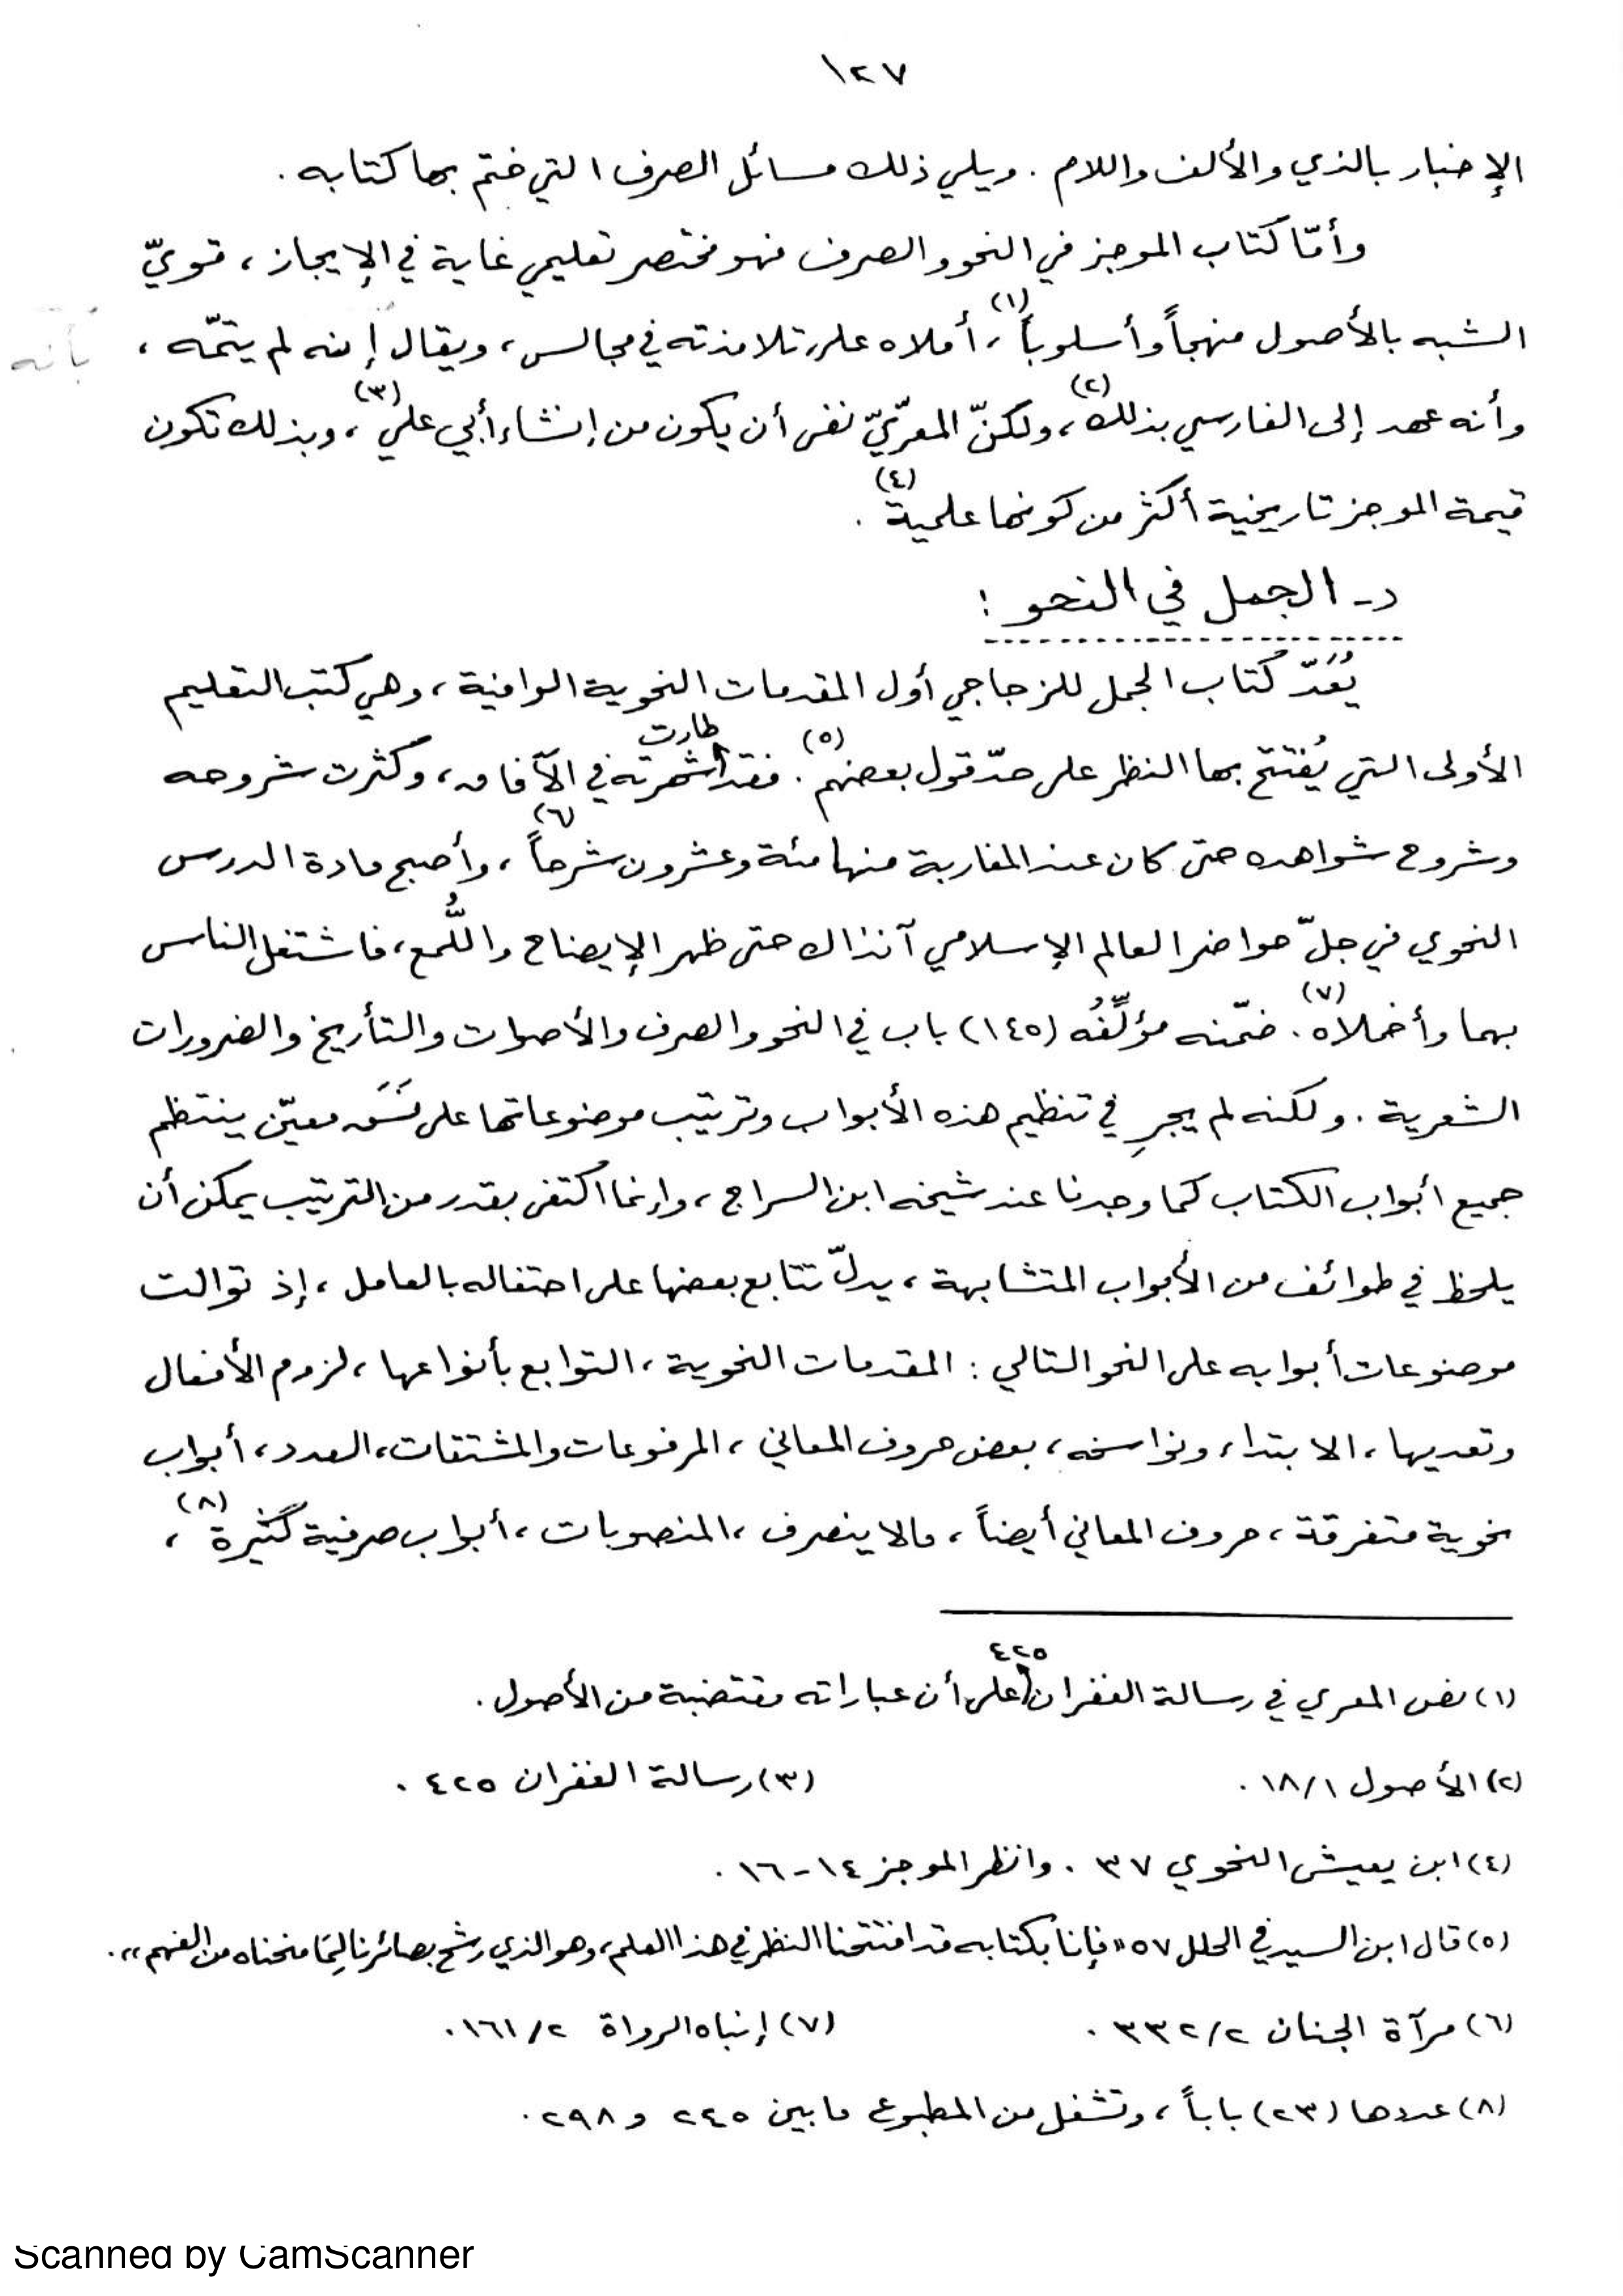 ١٢٧
الإخبار بالذي والألف واللام . ويلي ذلك مسائل الصرف التي ختم بها كتابه .
وأمّا كتاب الموجز في النحو والصرف فهو مختصر تعليمي غاية في الإيجاز ، قويّ
الشبه بالأصول منهجاً وأسلوباً (١) ، أملاه على تلامذته في مجالس ، ويقال إنه لم يتمّه ،
بأنه
وأنه عهد إلى الفارسي بذلك (٢) ، ولكنّ المعرّيّ نفى أن يكون من إنشاء أبي علي (٣) ، وبذلك تكون
قيمة الموجز تاريخية أكثر من كونها علمية (٤) .
د - الجمل في النحو :
يُعَدّ كتاب الجمل للزجاجي أول المقدمات النحوية الوافية ، وهي كتب التعليم
الأولى التي يُفتتح بها النظر على حدّ قول بعضهم (٥) . فقد طارت شهرته في الآفاق ، وكثرت شروحه
وشروح شواهده حتى كان عند المغاربة منها مئة وعشرون شرحاً (٦) ، وأصبح مادة الدرس
النحوي في جلّ حواضر العالم الإسلامي آنذاك حتى ظهر الإيضاح واللُّمع ، فاشتغل الناس
بهما وأخملاه (٧) . ضمّنه مؤلِّفُه (١٤٥) باب في النحو والصرف والأصوات والتأريخ والضرورات
الشعرية . ولكنه لم يجرِ في تنظيم هذه الأبواب وترتيب موضوعاتها على نَسَق معيّن ينتظم
جميع أبواب الكتاب كما وجدنا عند شيخه ابن السراج ، وإنما اكتفى بقدر من الترتيب يمكن أن
يلحظ في طوائف من الأبواب المتشابهة ، يدلّ تتابع بعضها على احتفاله بالعامل ، إذ توالت
موضوعات أبوابه على النحو التالي : المقدمات النحوية ، التوابع بأنواعها ، لزوم الأفعال
وتعديها ، الابتداء ونواسخه ، بعض حروف المعاني ، المرفوعات والمشتقات ، العدد ، أبواب
نحوية متفرقة ، حروف المعاني أيضاً ، مالا ينصرف ، المنصوبات ، أبواب صرفية كثيرة (٨) ،
(١) نص المعري في رسالة الغفران ٤٢٥ على أن عباراته مقتضبة من الأصول .
(٢) الأصول ١/١٨ . (٣) رسالة الغفران ٤٢٥ .
(٤) ابن يعيش النحوي ٣٧ . وانظر الموجز ١٤ - ١٦ .
(٥) قال ابن السيد في الحلل ٥٧ "فإنا بكتابه قد افتتحنا النظر في هذا العلم ، وهو الذي رشح بصائرنا لِمَا منحناه من الفهم" .
(٦) مرآة الجنان ٢/٣٣٢ . (٧) إنباه الرواة ٢/١٦١ .
(٨) عددها (٢٣) باباً ، وتشغل من المطبوع ما بين ٢٤٥ و ٢٩٨ .
Scanned by CamScanner